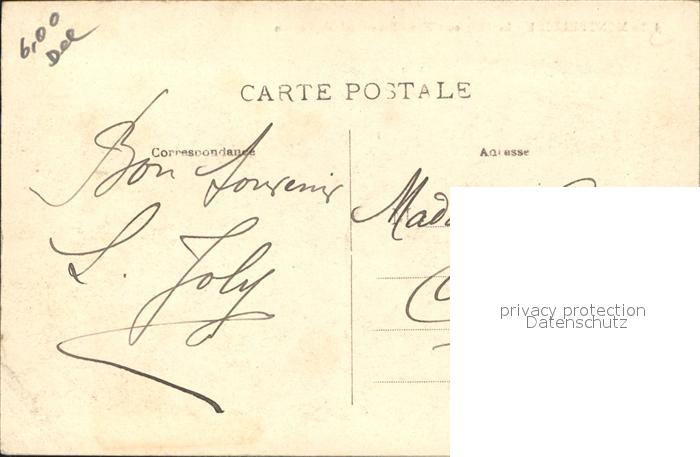 6,00
CARTE POSTALE
Correspondance
Adresse
Bon Souvenir
L. Joly
Mad
C
privacy protection
Datenschutz